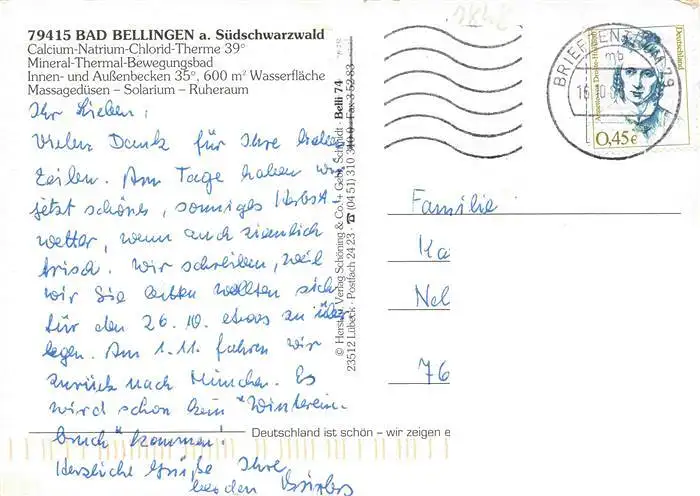 79415 BAD BELLINGEN a. Südschwarzwald
Calcium-Natrium-Chlorid-Therme 39°
Mineral-Thermal-Bewegungsbad
Innen- und Außenbecken 35°, 600 m² Wasserfläche
Massagedüsen – Solarium – Ruheraum
Ihr Lieben,
Vielen Dank für Ihre lieben
Zeilen. Am Tage haben wir
jetzt schönes, sonniges Herbst-
wetter, wenn auch ziemlich
frisch. Wir schreiben, weil
wir Sie bitten wollten sich
für den 26.10. etwas zu über
legen. Am 1.11. fahren wir
zurück nach München. Es
wird schon kein "Winterein-
bruch" kommen!
Herzliche Grüße Ihre
beiden
Deutschland ist schön – wir zeigen e
© Hersteller Verlag Schöning & Co. + Gebr. Schmidt · Belli 74
23512 Lübeck · Postfach 24 23 · ☎ (04 51) 310 340-0 · Fax 3 52 83
BRIEFZENTRUM 79
mb
Deutschland
0,45€
Familie
Ka
Nel
76